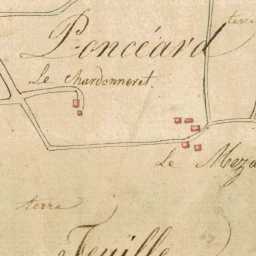 terre
Poncéard
Le Chardonneret
Le Meza
terre
Feuille